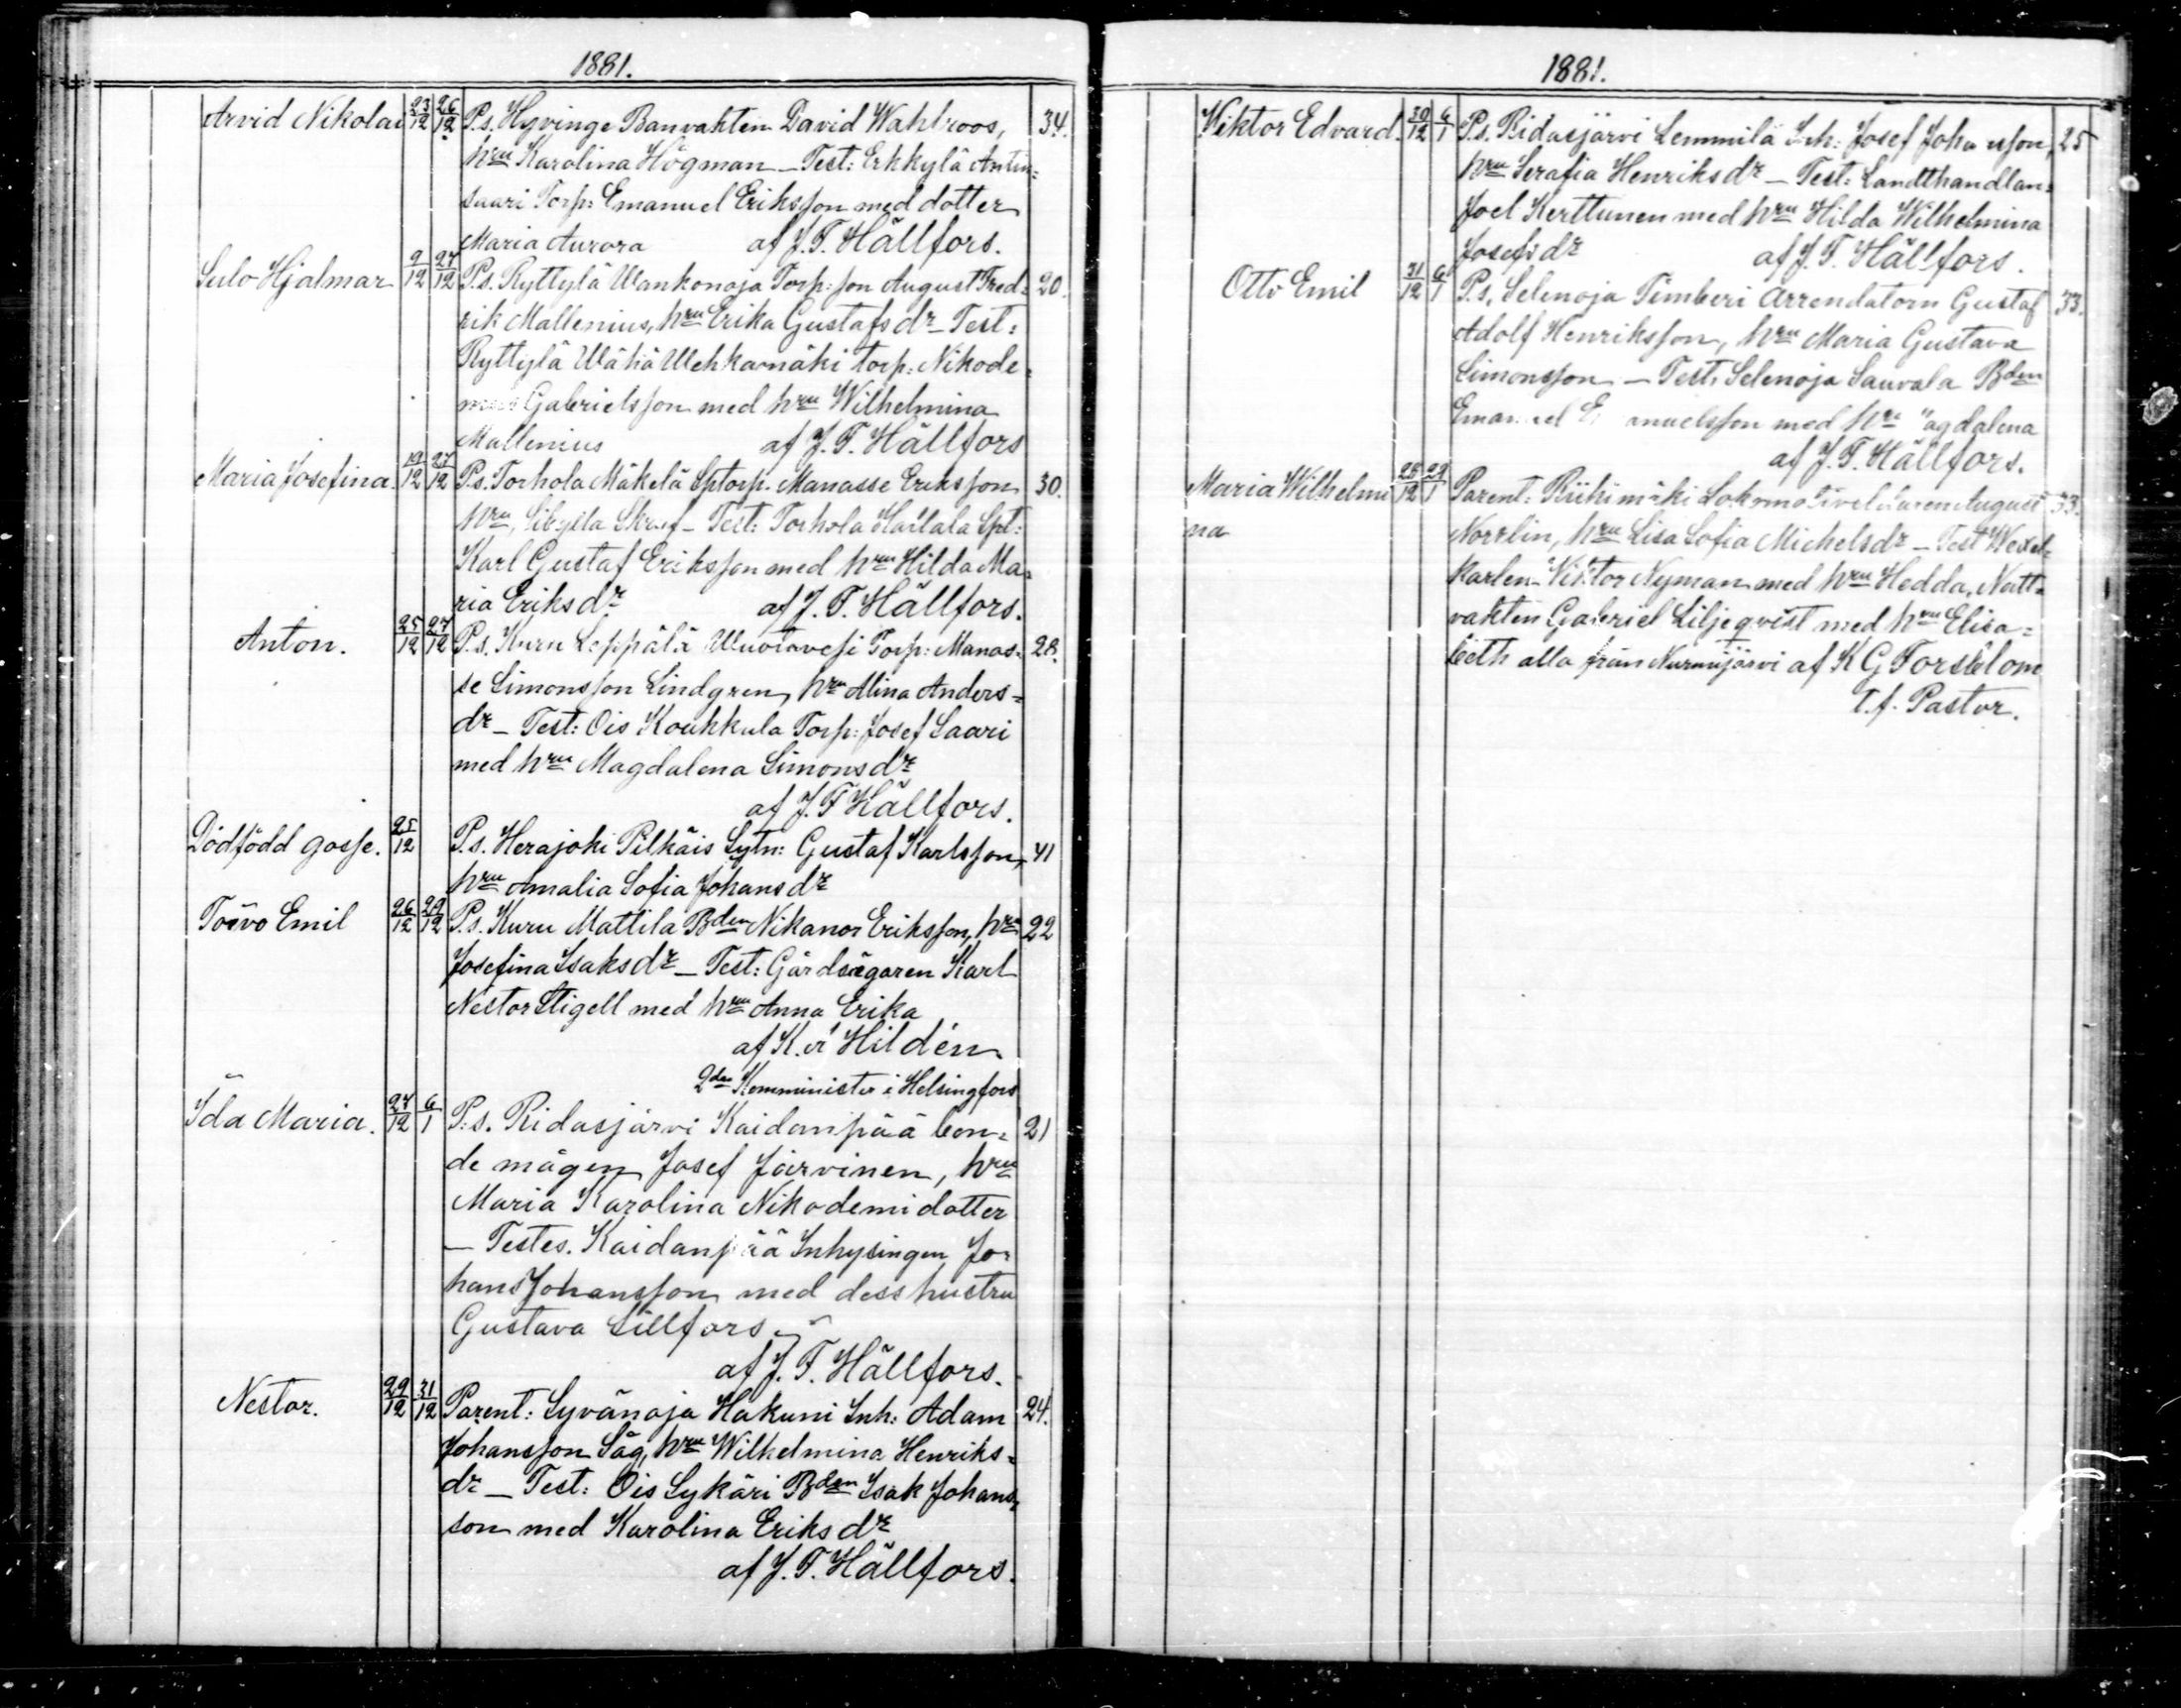 1881.
Arvid Nikolai 23/12 26/12 P.s. Hyvinge Banvakten David Wahlroos, 34.
hru Karolina Högman _ Test: Erkkylä Antin=
saari Torp: Emanuel Eriksson med dotter
Maria Aurora af J. F. Hällfors.
Sulo Hjalmar 9/12 27/12 P.s. Ryttylä Wankonoja Torp: son August Fred= 20.
rik Mallenius, hru Erika Gustafsdr _ Test:
Ryttylä Wähä Wehkamäki torp: Nikode=
mus Gabrielsson med hru Wilhelmina
Mallenius af J. F. Hällfors
Maria Josefina. 19/12 27/12 P.s. Torhola Mäkelä Sptorp. Manasse Eriksson 30.
hru, Sibylla _ Test: Torhola Spt:
Karl Gustaf Eriksson med hru Hilda Ma=
ria Eriksdr af J. F. Hällfors.
Anton. 25/12 27/12 P.s. Kuru Leppälä Torp: Manas= 28.
se Simonsson Lindgren, hru Mina Anders=
dr _ Test: Ois Koukkula Torp: Josef Saari
med hru Magdalena Simonsdr
af J. F Hällfors.
Dödfödd gosse. 25/12 P.s. Herajoki Pilkäis Sytn: Gustaf Karlsson, 41
hru Amalia Sofia Johansdr
Toivo Emil 26/12 29/12 P.s. Kuru Mattila Bden Nikanor Eriksson, hru 22
Josefina Isaksdr _ Test: Gårdsägaren Karl
Nestor Stigell med hru Anna Erika
af K. Hildén
2dre Komminister i Helsingfors
Ida Maria. 27/12 6/1 P.s. Ridasjärvi Kaidanpää bon= 21
de mågen Josef Järvinen, hru
Maria Karolina Nikodemidotter
_ Testes. Kaidanpää Inhysingen Jo=
hans Johansson med dess hustru
Gustava Lillfors
af J. F. Hällfors.
Nestor. 29/12 31/12 Parent: Syvänoja Hakuni Inh: Adam 24.
Johansson Säg, hru Wilhelmina Henriks=
dr _ Test: Ois Sykäri Bden Isak Johans=
son med Karolina Eriksdr
af J. F. Hällfors.
1881.
Wiktor Edvard. 30/12 6/1 P.s. Ridasjärvi Lemmilä Inh: Josef Johansson, 25
hru Serafia Henriksdr _ Test: Landthandlan=
Joel Kerttunen med hru Hilda Wilhelmina
Josefsdr af J. F. Hällfors.
Otto Emil 31/12 6/1 P.s. Selenoja Timberi Arrendatorn Gustaf 33.
Adolf Henriksson, hru Maria Gustava
Simonsson _ Test. Selenoja Sauvala Bden
Emanuel Emanuelsson med hru Magdalena
af J. F. Hällfors.
Maria Wilhelmi 28/12 29/1 Parent: Riihimäki Lokomotiveldaren August 33.
na Norrlin, hru Lisa Sofia Michelsdr _ Test Wexel=
karlen Viktor Nyman med hru Hedda, Natt=
vakten Gabriel Liljeqvist med hru Elisa=
beth alla från Nurmijärvi af K G Forsblom
t.f. Pastor.